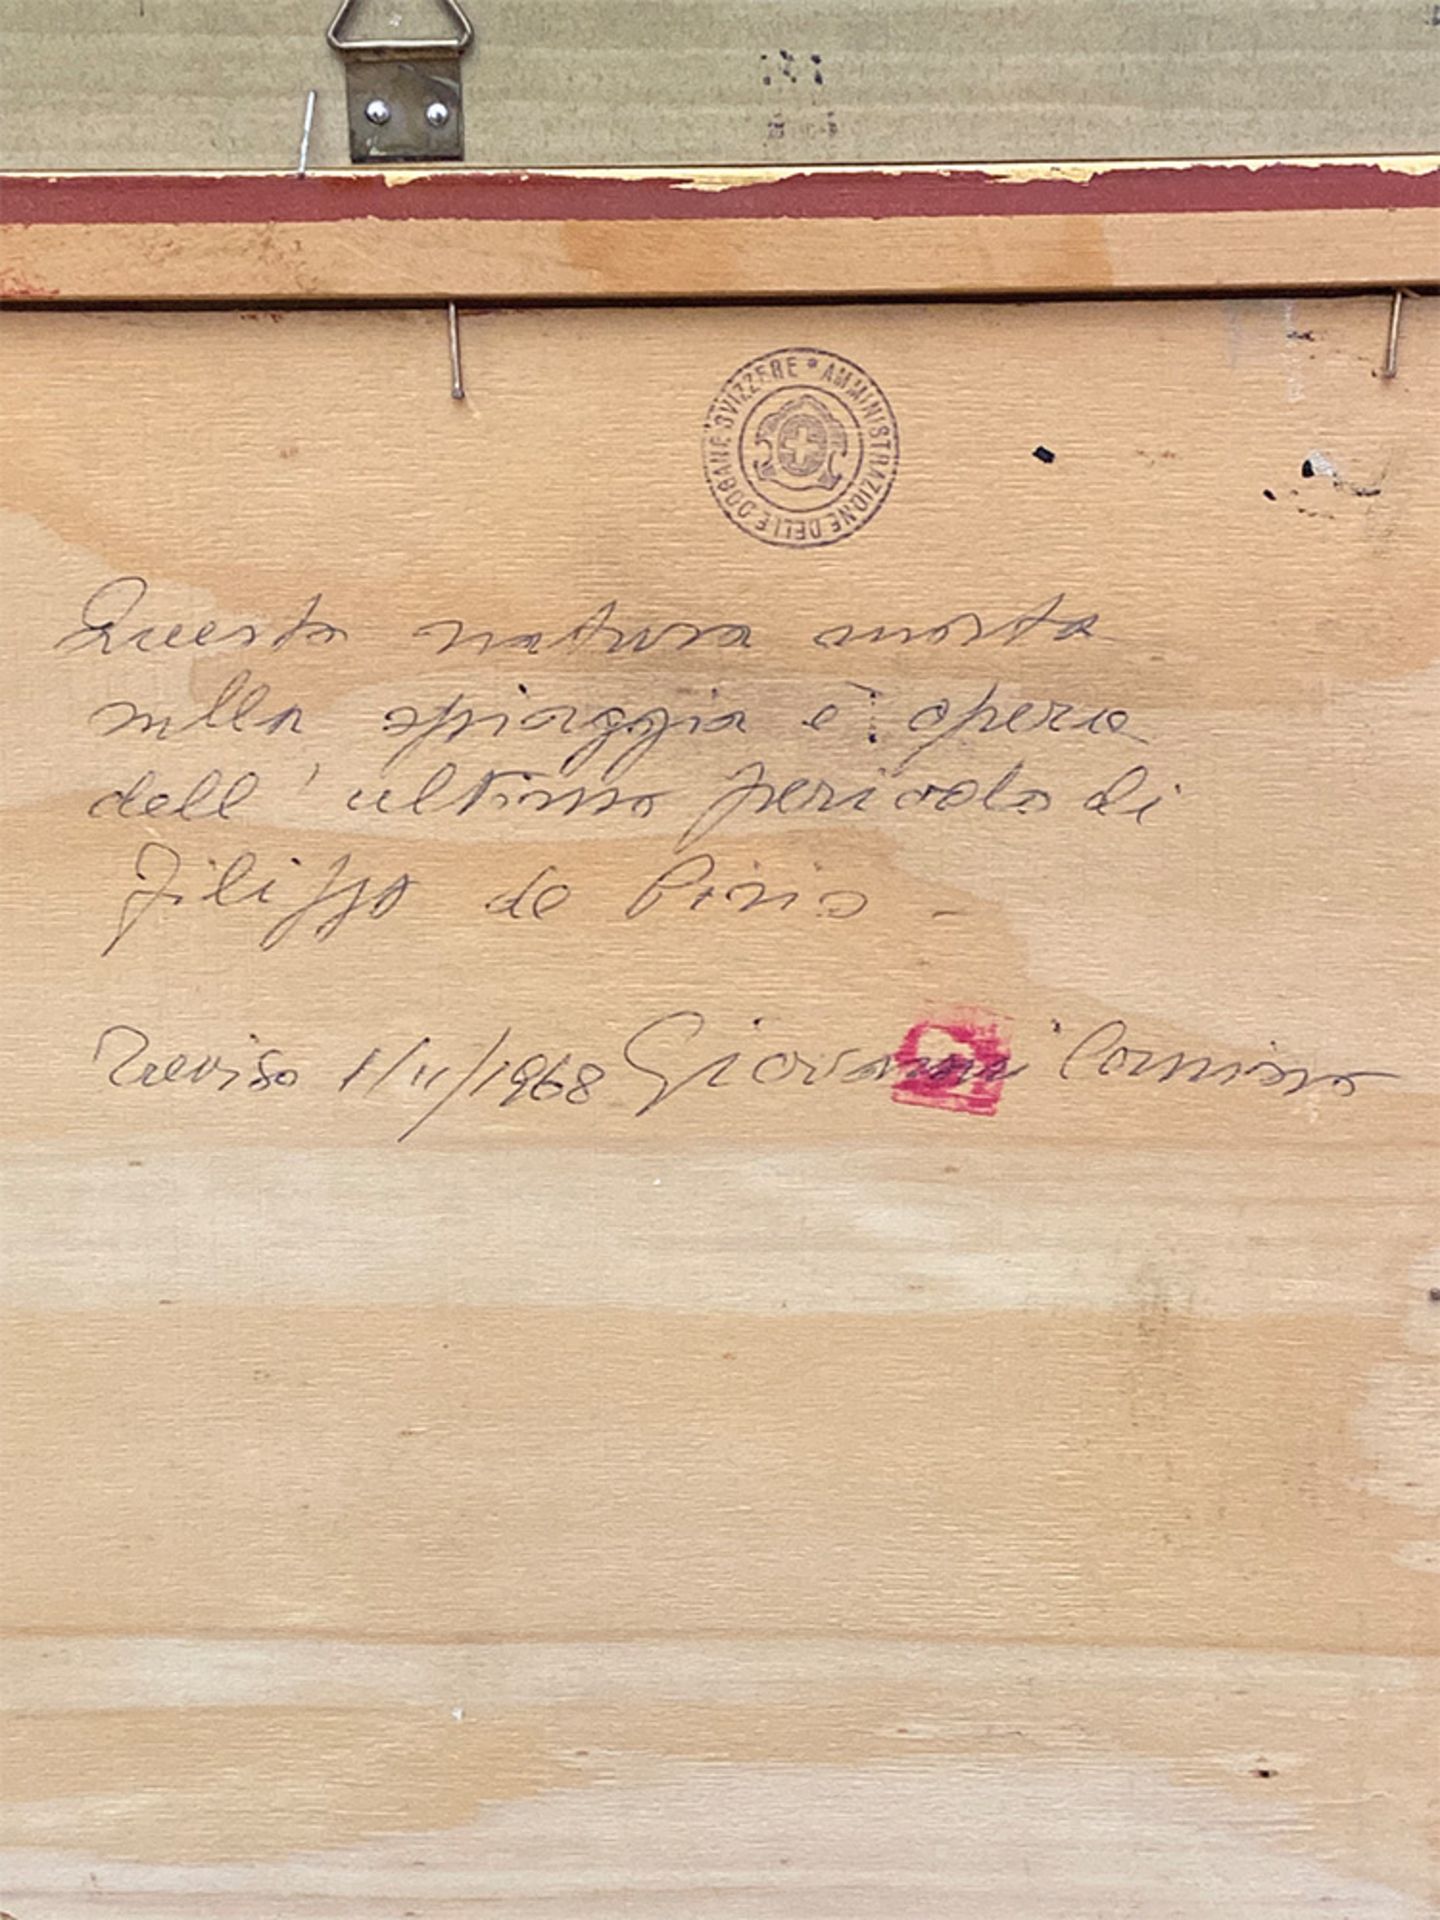 AMMINISTRAZIONE DELLE DOGANE SVIZZERE *
Questa natura morta
sulla spiaggia è opera
dell'ultimo periodo di
Filippo de Pisis –
Treviso 1/11/1968 Giovanni Comisso